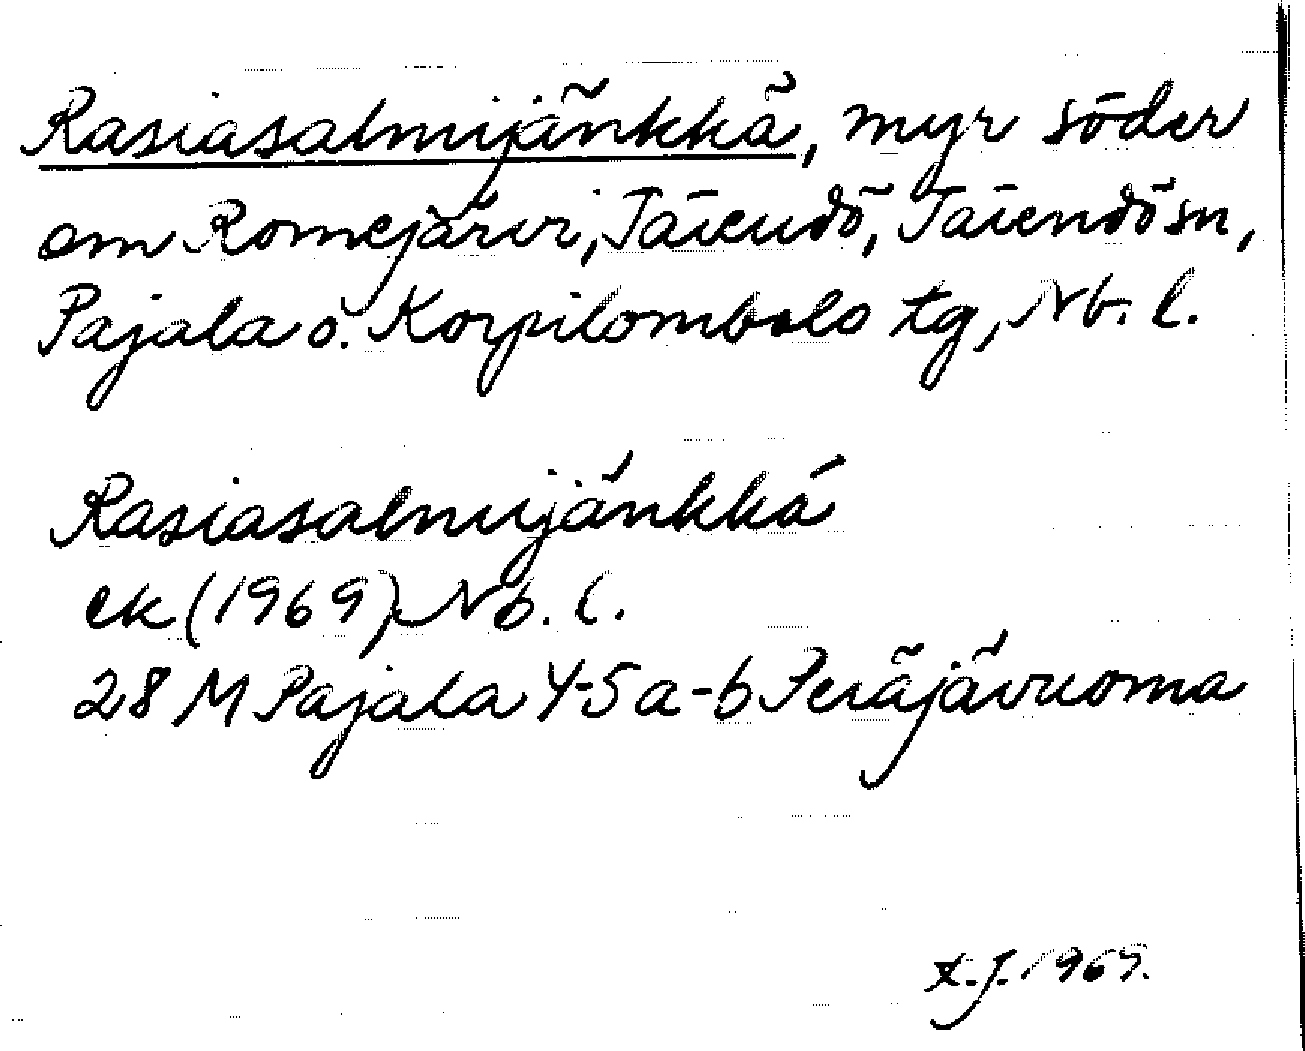 Rasiasalmijänkkä, myr söder
om Romejärvi, Täiendö, Täiendö sn,
Pajala o. Korpilombolo tg, Nb. l.
Rasiasalmijänkkä
ek (1969) Nb. l.
28 M Pajala 4-5 a-b Peräjävuoma
1969.